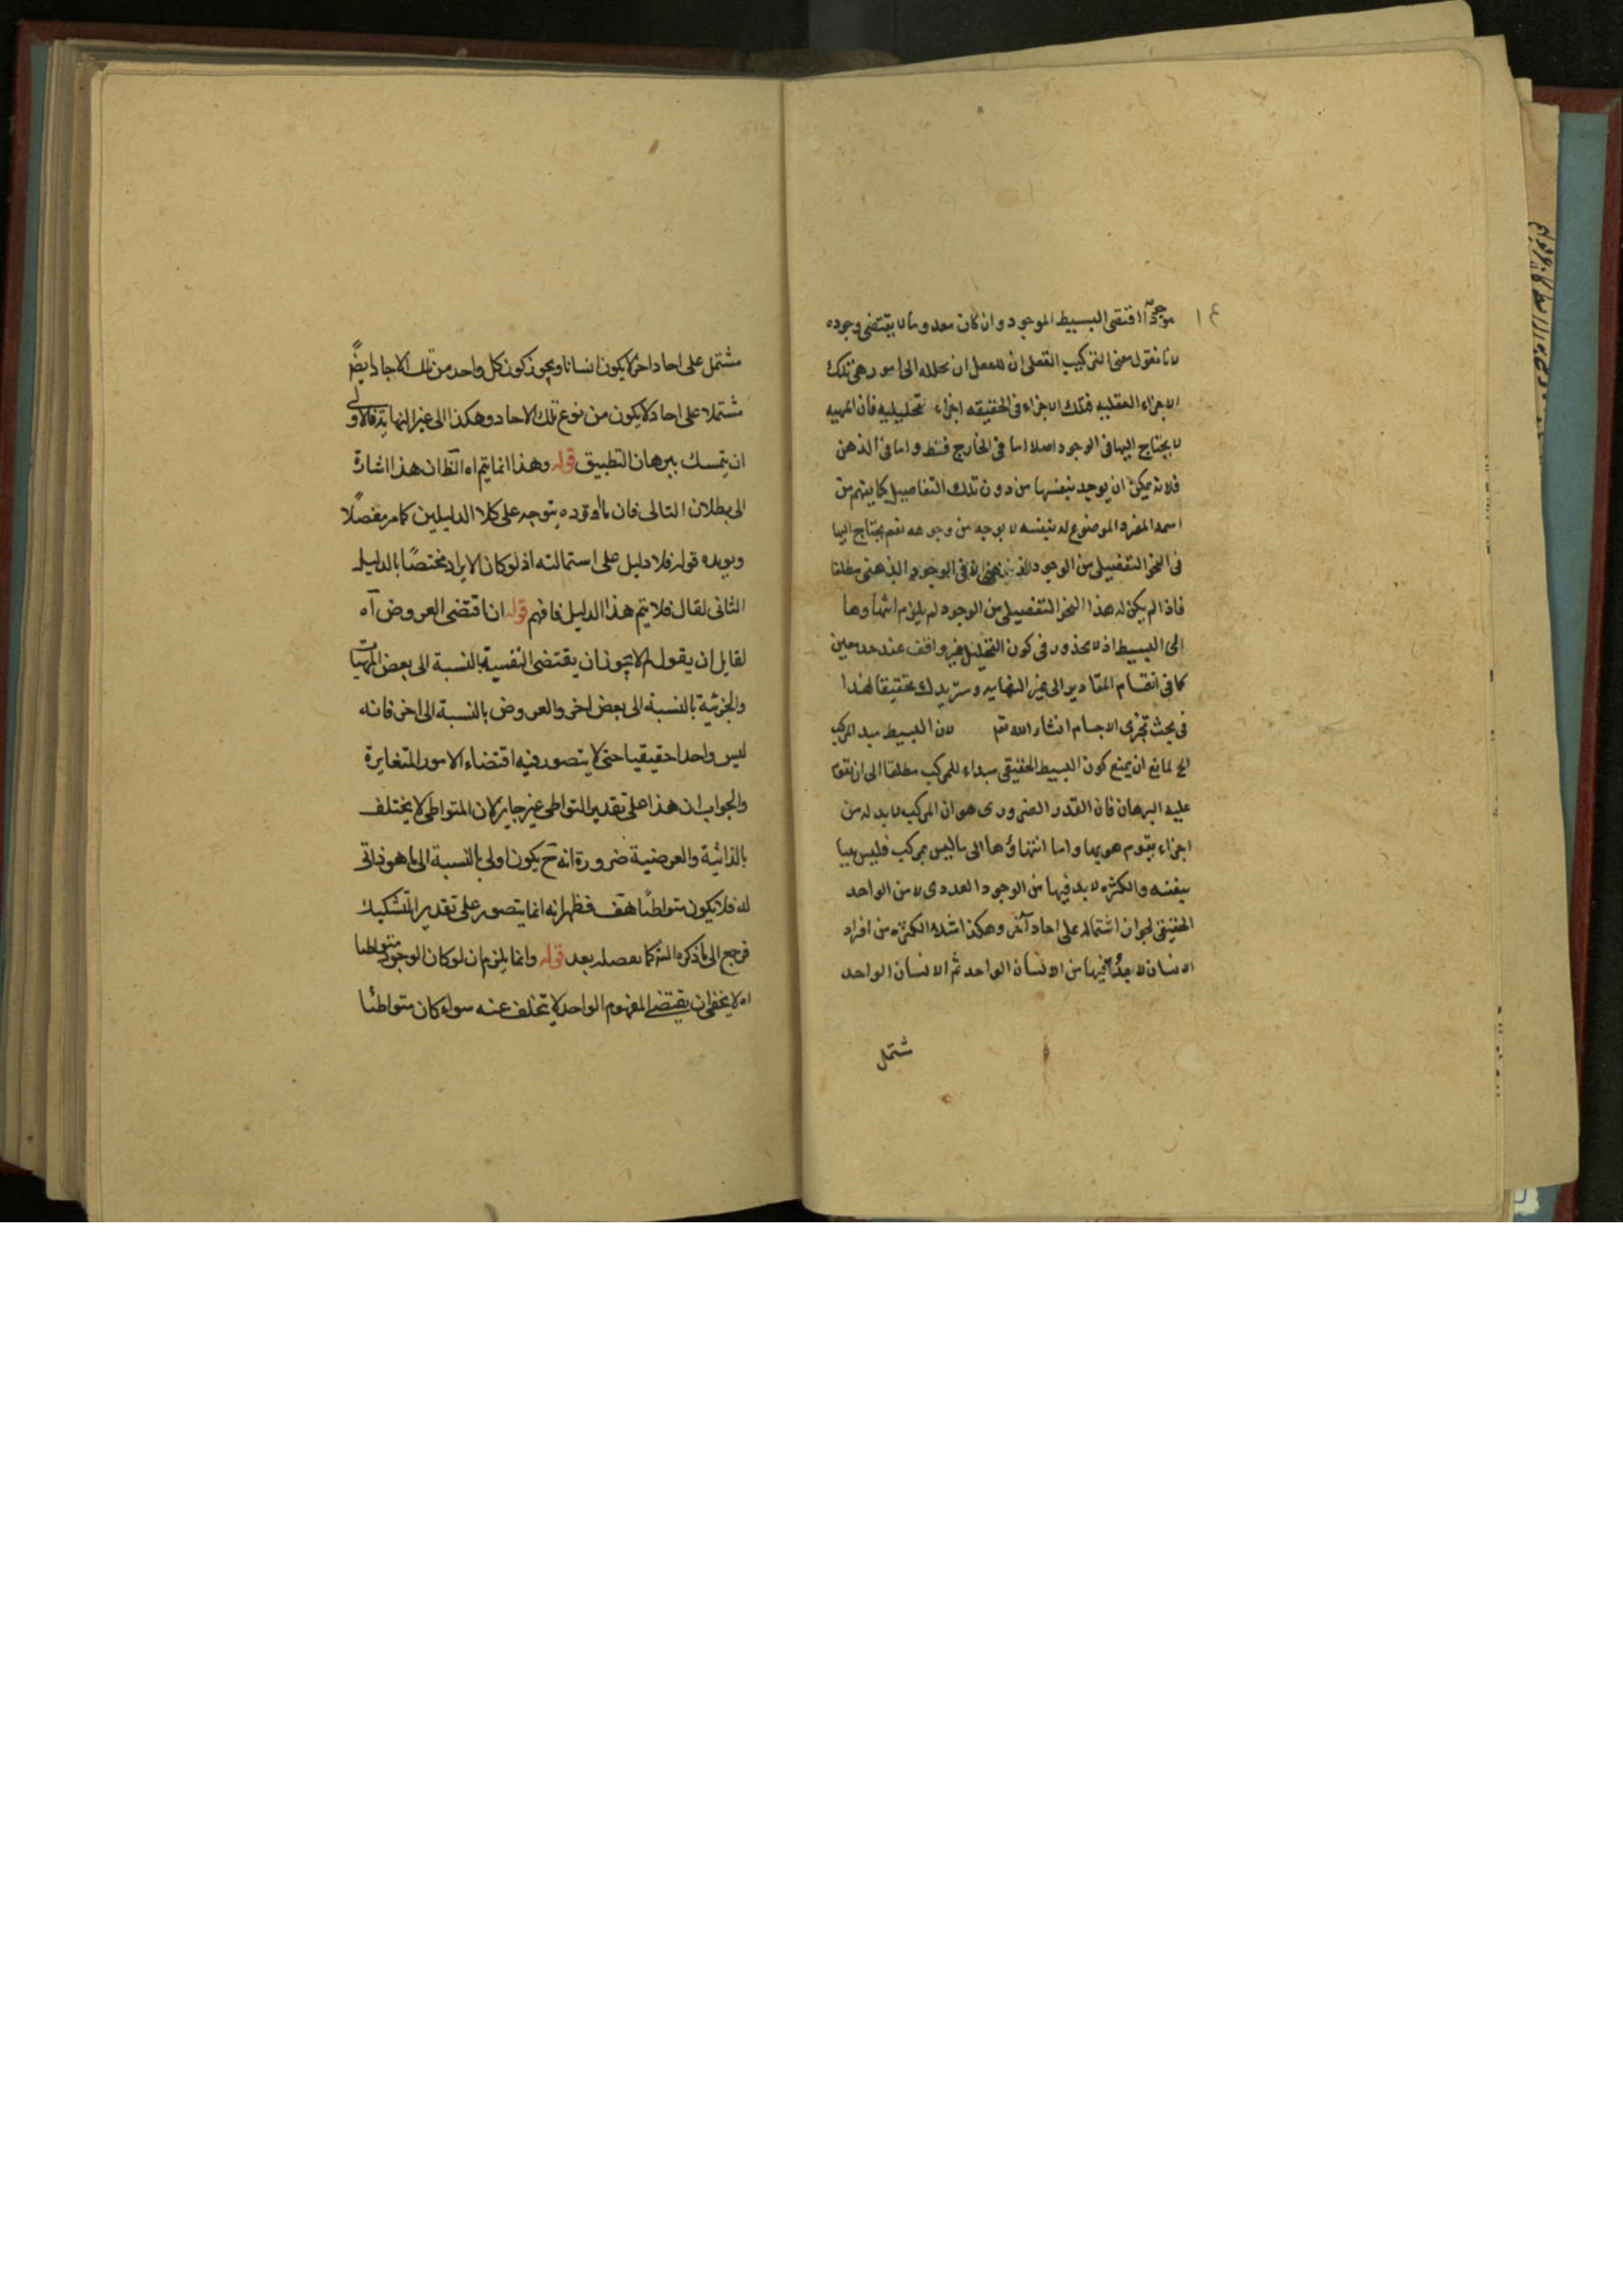 موجودا اقتضى البسيط الموجود وان كان معدوما لا يقتضى وجوده
لانا نقول معنى التركيب العقلى ان للعقل ان يحلله الى امور هى تلك
الاجزاء العقليه فتلك الاجزاء فى الحقيقه اجزاء تحليليه فان المهيه
لا يحتاج اليها فى الوجود اصلا اما فى الخارج فقط واما فى الذهن
فلانه يمكن ان يوجد بنفسها من دون تلك التفاصيل كما يفهم من
اسمه المفرد الموضوع له بنفسه لا بوجه من وجوهه نعم يحتاج اليها
فى النحو التفصيلى من الوجود الذهنى لا فى الوجود الذهنى مطلقا
فاذا لم يكن له هذا النحو التفصيلى من الوجود لم يلزم انتهاوها
الى البسيط اذ لا محذور فى كون التحليل غير واقف عند حد معين
كما فى انقسام المقادير الى غير النهايه وستزيدك تحقيقا لهذا
فى بحث تجزى الاجسام انشاء الله تعم لان البسيط مبدء المركب
الخ لمانع ان يمنع كون البسيط الحقيقى مبداء للمركب مطلقا الى ان يقوم
عليه البرهان فان القدر الضرورى هو ان المركب لا بد له من
اجزاء يتقوم هو بها واما انتهاؤها الى ما ليس بمركب فليس بينا
بنفسه والكثره لا بد فيها من الوجود العددى لا من الواحد
الحقيقى لجواز اشتماله على احاد آخر وهكذا مثلا الكثره من افراد
الانسان لا بد فيها من الانسان الواحد ثم الانسان الواحد
شتمل
مشتمل على احاد اخر لا يكون انسانا ويجوز كون كل واحد من تلك الاحاد ايضًا
مشتملا على احاد لا يكون من نوع تلك الاحاد وهكذا الى غير النهاية فالاولى
ان يتمسك ببرهان التطبيق قوله وهذا انما يتم اه الظ ان هذا اشارة
الى بطلان التالى فان ما اورده يتوجه على كلا الدليلين كما مر مفصلًا
ويويده قوله فلا دليل على استحالته اذ لو كان الايراد مختصًا بالدليل
الثانى لقال فلا يتم هذا الدليل فافهم قوله ان اقتضى العروض آه
لقايل ان يقول لم لا يجوز ان يقتضى النفسية بالنسبة الى بعض المهيات
والجزئية بالنسبة الى بعض اخر والعروض بالنسبة الى اخر فانه
ليس واحدا حقيقيا حتى لا يتصور فيه اقتضاء الامور المتغايرة
والجواب ان هذا على تقدير التواطى غير جايز لان المتواطى لا يختلف
بالذاتية والعرضية ضرورة انه ح يكون اولى بالنسبة الى ما هو ذاتى
له فلا يكون متواطئًا هف فظهر انه انما يتصور على تقدير التشكيك
فرجع الى ما ذكره الش كما نفصله بعد قوله وانما يلزم ان لو كان الوجود متواطئا
اه لا يخفى ان مقتضى المفهوم الواحد لا يتخلف عنه سواء كان متواطئا